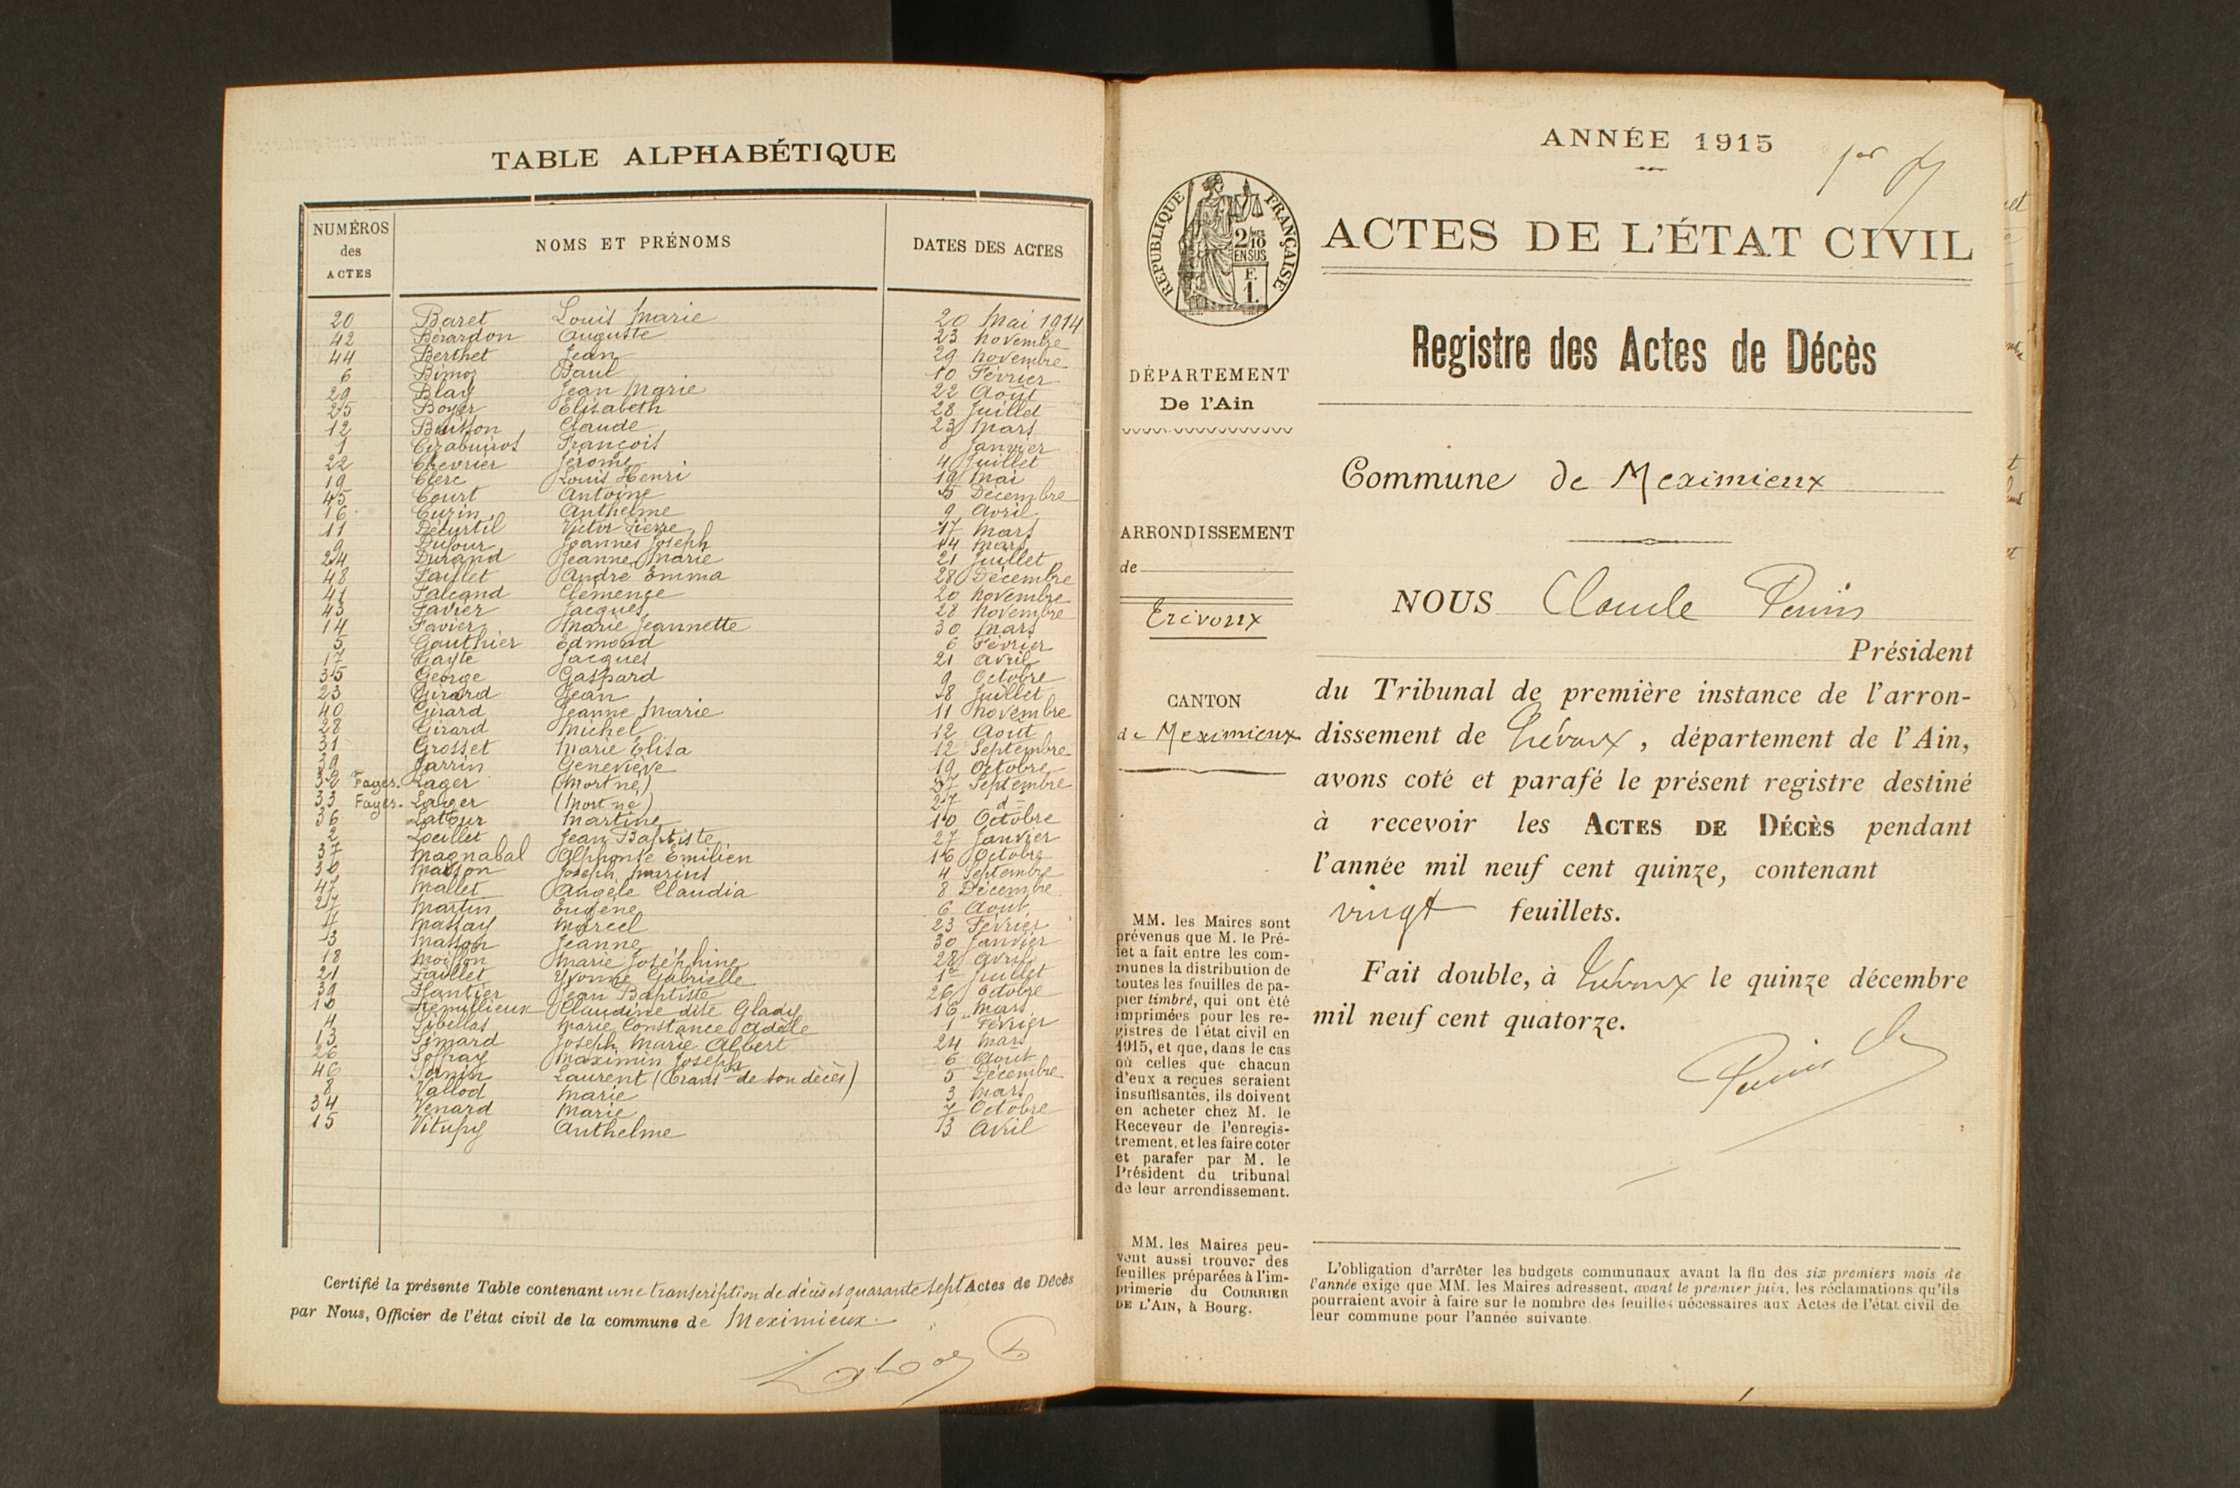 TABLE ALPHABÉTIQUE
NUMÉROS des ACTES NOMS ET PRÉNOMS DATES DES ACTES
20 Baret Louis Marie 20 Mai 1914
42 Berardon Auguste 23 Novembre
44 Berthet Jean 29 Novembre
6 Bimoz Paul 10 Février
29 Blay Jean Marie 22 Août
25 Boyer Elisabeth 28 Juillet
12 Buisson Claude 23 Mars
1 François 8 Janvier
22 Chevrier Jérome 4 Juillet
19 Clerc Louis Henri 19 Mai
45 Court Antoine 5 Décembre
16 Curin Anthelme 9 Avril
11 Decurtil Victor Pierre 17 Mars
9 Dufour Joannès Joseph 14 Mars
24 Durand Jeanne Marie 21 Juillet
48 Faillet André Emma 28 Décembre
41 Falcand Clémence 20 Novembre
43 Favier Jacques 28 Novembre
14 Favier Marie Jeannette 30 Mars
5 Gauthier Edmond 6 Février
17 Gayte Jacques 21 Avril
35 George Gaspard 9 Octobre
23 Girard Jean 18 Juillet
40 Girard Jeanne Marie 11 Novembre
28 Girard Michel 12 Août
31 Grosset Marie Elisa 12 Septembre
39 Jarrin Geneviève 19 Octobre
32 Fayes. Lager (Mort né) 27 Septembre
33 Fayes. Lager (Mort né) 27 d°
36 Latour Martine 10 Octobre
2 Loeillet Jean Baptiste 27 Janvier
37 Magnabal Alphonse Emilien 16 Octobre
30 Maison Joseph Marius 4 Septembre
47 Mallet Angèle Claudia 8 Décembre
27 Martin Eugène 6 Août
7 Massay Marcel 23 Février
3 Masson Jeanne 30 Janvier
18 Moisson Marie Joséphine 28 Avril
21 Paillet Yvonne Gabrielle 1er Juillet
39 Plantier Jean Baptiste 26 Octobre
10 Remillieux Claudine dite Glady 16 Mars
4 Sibellas Marie Constance Adèle 1 Février
13 Simard Joseph Marie Albert 24 Mars
26 Soffray Maximin Joseph 6 Août
46 Sornin Laurent (Trans de son décès) 5 Décembre
8 Vallod Marie 3 Mars
34 Venard Marie 7 Octobre
15 Vitupy Anthelme 13 Avril
Certifié la présente Table contenant une transcription de décès et quarante sept Actes de Décès
par Nous, Officier de l'état civil de la commune de Meximieux.
ANNÉE 1915
1er
RÉPUBLIQUE FRANÇAISE
2/10 EN SUS
F. 1.
ACTES DE L'ÉTAT CIVIL
Registre des Actes de Décès
DÉPARTEMENT
De l'Ain
Commune de Meximieux
ARRONDISSEMENT
de
Trévoux
NOUS Claude Perrin
Président
CANTON
de Meximieux
du Tribunal de première instance de l'arron-
dissement de Trévoux, département de l'Ain,
avons coté et parafé le présent registre destiné
à recevoir les ACTES DE DÉCÈS pendant
l'année mil neuf cent quinze, contenant
vingt feuillets.
Fait double, à Trévoux le quinze décembre
mil neuf cent quatorze.
MM. les Maires sont
prévenus que M. le Pré-
fet a fait entre les com-
munes la distribution de
toutes les feuilles de pa-
pier timbré, qui ont été
imprimées pour les re-
gistres de l'état civil en
1915, et que, dans le cas
où celles que chacun
d'eux a reçues seraient
insuffisantes, ils doivent
en acheter chez M. le
Receveur de l'enregis-
trement, et les faire coter
et parafer par M. le
Président du tribunal
de leur arrondissement.
MM. les Maires peu-
vent aussi trouver des
feuilles préparées à l'im-
primerie du COURRIER
DE L'AIN, à Bourg.
L'obligation d'arrêter les budgets communaux avant la fin des six premiers mois de
l'année exige que MM. les Maires adressent, avant le premier juin, les réclamations qu'ils
pourraient avoir à faire sur le nombre des feuilles nécessaires aux Actes de l'état civil de
leur commune pour l'année suivante